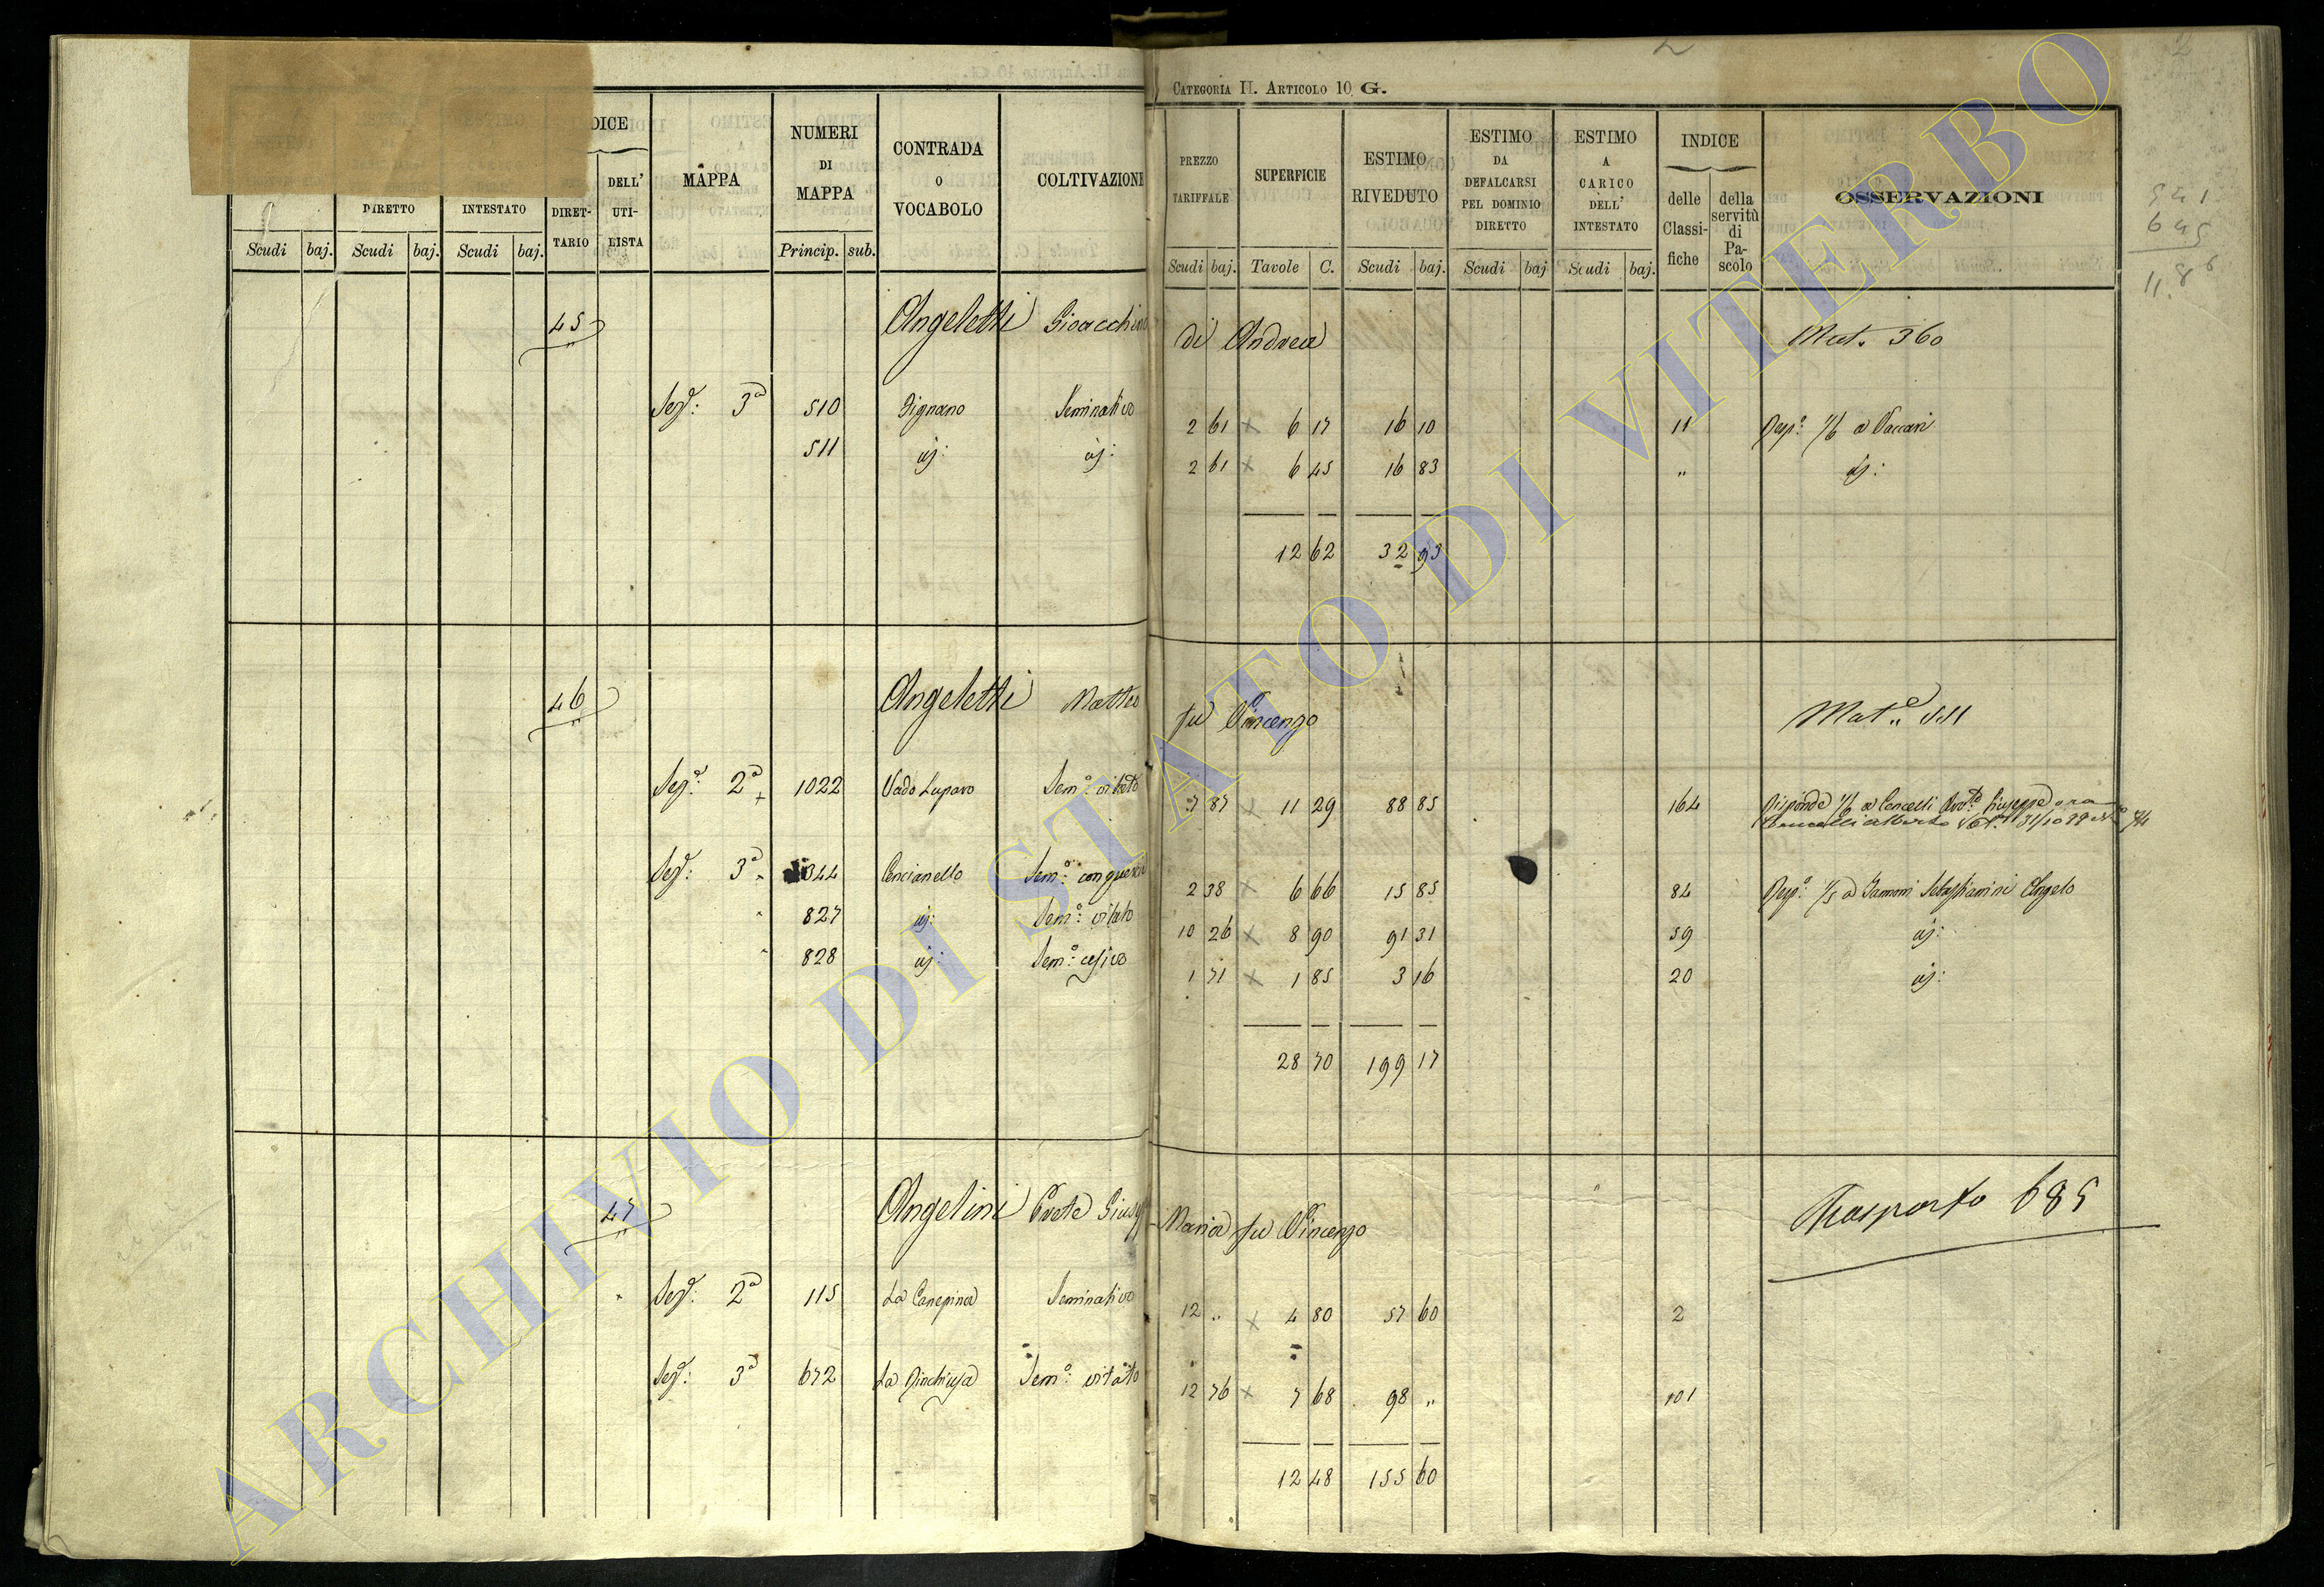 CATEGORIA II. ARTICOLO 10 G.
DICE MAPPA NUMERI DI MAPPA CONTRADA O VOCABOLO COLTIVAZIONI PREZZO TARIFFALE SUPERFICIE ESTIMO RIVEDUTO ESTIMO DA DEFALCARSI PEL DOMINIO DIRETTO ESTIMO A CARICO DELL' INTESTATO INDICE OSSERVAZIONI
DIRETTO INTESTATO DIRETTARIO DELL' UTILISTA delle Classifiche della servitù di Pascolo
Scudi baj. Scudi baj. Scudi baj. Princip. sub. Scudi baj. Tavole C. Scudi baj. Scudi baj Scudi baj.
541
645
11.86
45 Angeletti Gioacchino di Andrea Mat. 360
Sez.e: 3a 510 Pignano Seminativo 2 61 x 6 17 16 10 11 Risp.e 1/6 a Vaccari
511 id: id: 2 61 x 6 45 16 83 " id:
12 62 32 93
46 Angeletti Matteo fu Vincenzo Mat.e
Sez.e: 2a 1022 Vado Luparo Sem.o vitato 7 87 x 11 29 88 85 164 Risponde 1/6 a Cencelli Giuseppe ora
Cencelli Alberto
Sez.e: 3a 344 Cencianello Sem.o: con querce 2 38 x 6 66 15 85 84 Risp.e 1/5 a Sebastiani Angelo
827 id: Sem.o: vitato 10 26 x 8 90 91 31 59 id:
828 id: Sem.o: cesivo 1 71 x 1 85 3 16 20 id:
28 70 199 17
47 Angelini Giusep Maria fu Vincenzo Trasporto 685
Sez.e: 2a 115 La Canepina Seminativo 12 " x 4 80 57 60 2
Sez.e: 3a 672 La Rinchiusa Sem.o: vitato 12 76 x 7 68 98 " 101
12 48 155 60
ARCHIVIO DI STATO DI VITERBO